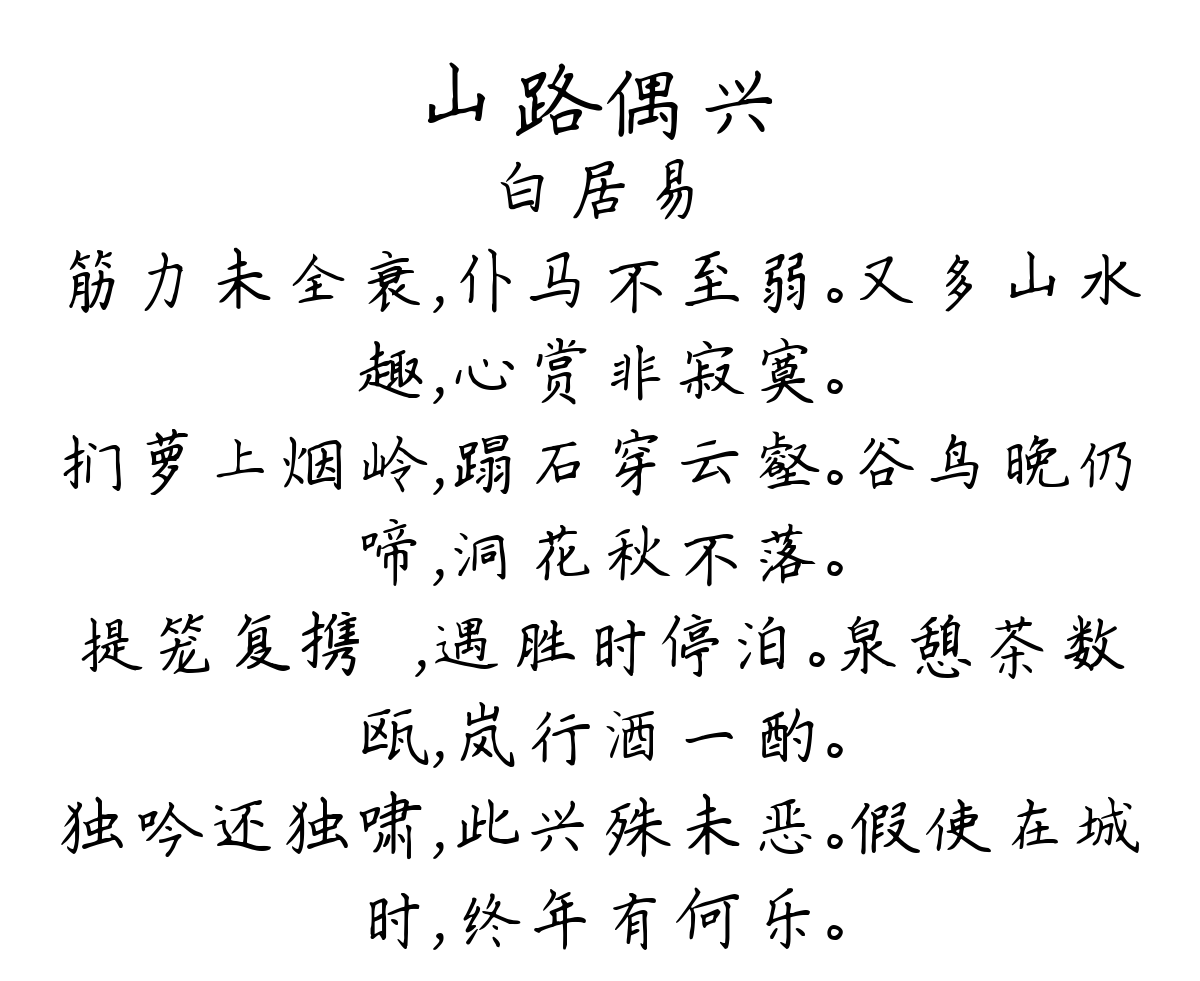 山路偶兴
白居易
筋力未全衰,仆马不至弱。又多山水
趣,心赏非寂寞。
扪萝上烟岭,蹋石穿云壑。谷鸟晚仍
啼,洞花秋不落。
提笼复携 ,遇胜时停泊。泉憩茶数
瓯,岚行酒一酌。
独吟还独啸,此兴殊未恶。假使在城
时,终年有何乐。